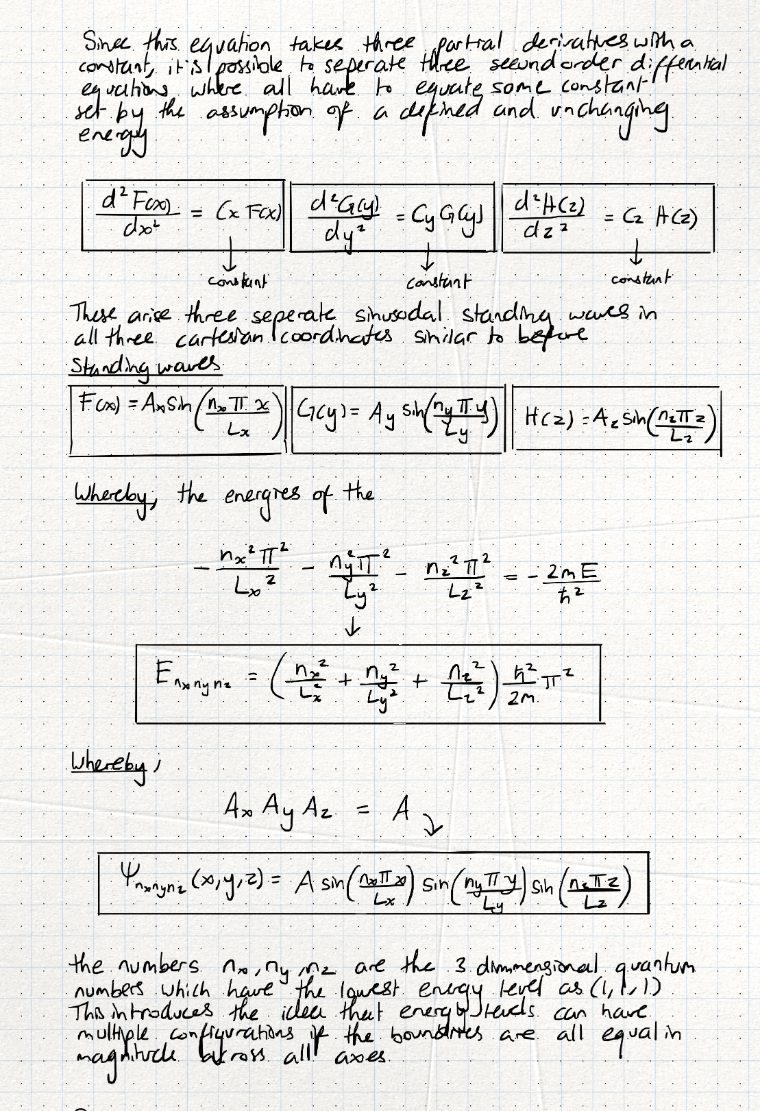 Since this equation takes three partial derivatives with a
constant, it is possible to seperate three second order differential
equations, where all have to equate some constant
set by the assumption of a defined and unchanging
energy
d²F(x)/dx² = Cx F(x) d²G(y)/dy² = Cy G(y) d²H(z)/dz² = Cz H(z)
constant constant constant
These arise three seperate sinusodal standing waves in
all three cartesian coordinates similar to before
Standing waves
F(x) = Ax sin(nxπx/Lx) G(y) = Ay sin(nyπy/Ly) H(z) = Az sin(nzπz/Lz)
Whereby, the energies of the
- nx²π²/Lx² - ny²π²/Ly² - nz²π²/Lz² = - 2mE/ħ²
↓
E nx ny nz = (nx²/Lx² + ny²/Ly² + nz²/Lz²) ħ²/2m π²
Whereby;
Ax Ay Az = A
Ψnxnynz (x,y,z) = A sin(nxπx/Lx) sin(nyπy/Ly) sin(nzπz/Lz)
the numbers nx, ny, nz are the 3 dimmensional quantum
numbers which have the lowest energy level as (1,1,1)
This introduces the idea that energy levels can have
multiple configurations if the boundries are all equal in
magnitude across all axes.